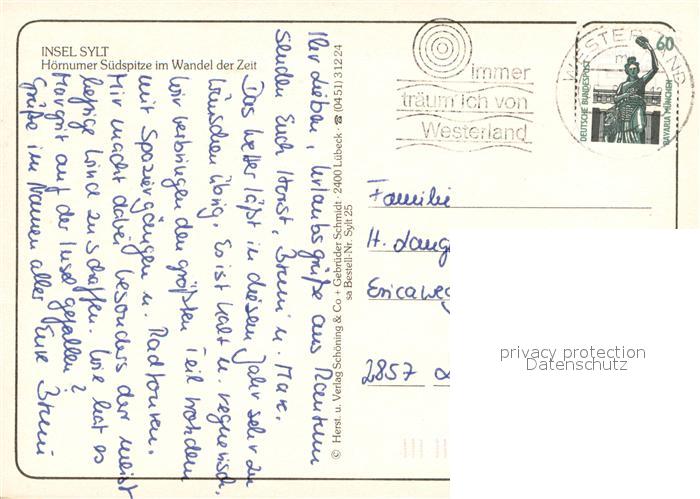 INSEL SYLT
Hörnumer Südspitze im Wandel der Zeit
Ihr Lieben, Urlaubsgrüße aus Rantum
senden Euch Horst, Bruni u. Marc.
Das Wetter läßt in diesem Jahr sehr zu
wünschen übrig. Es ist kalt u. regnerisch.
Wir verbringen den größten Teil trotzdem
mit Spaziergängen u. Radtouren.
Mir macht dabei besonders der meist
heftige Wind zu schaffen. Wie hat es
Margrit auf der Insel gefallen?
Grüße im Namen aller Eure Bruni
© Herst. u. Verlag Schöning & Co + Gebrüder Schmidt · 2400 Lübeck · ☎ (04 51) 3 12 24
sa Bestell-Nr. Sylt 25
immer
träum ich von
Westerland
WESTERLAND
60
DEUTSCHE BUNDESPOST
BAVARIA MÜNCHEN
Familie
H. Lang
Ericaweg
2857
privacy protection
Datenschutz